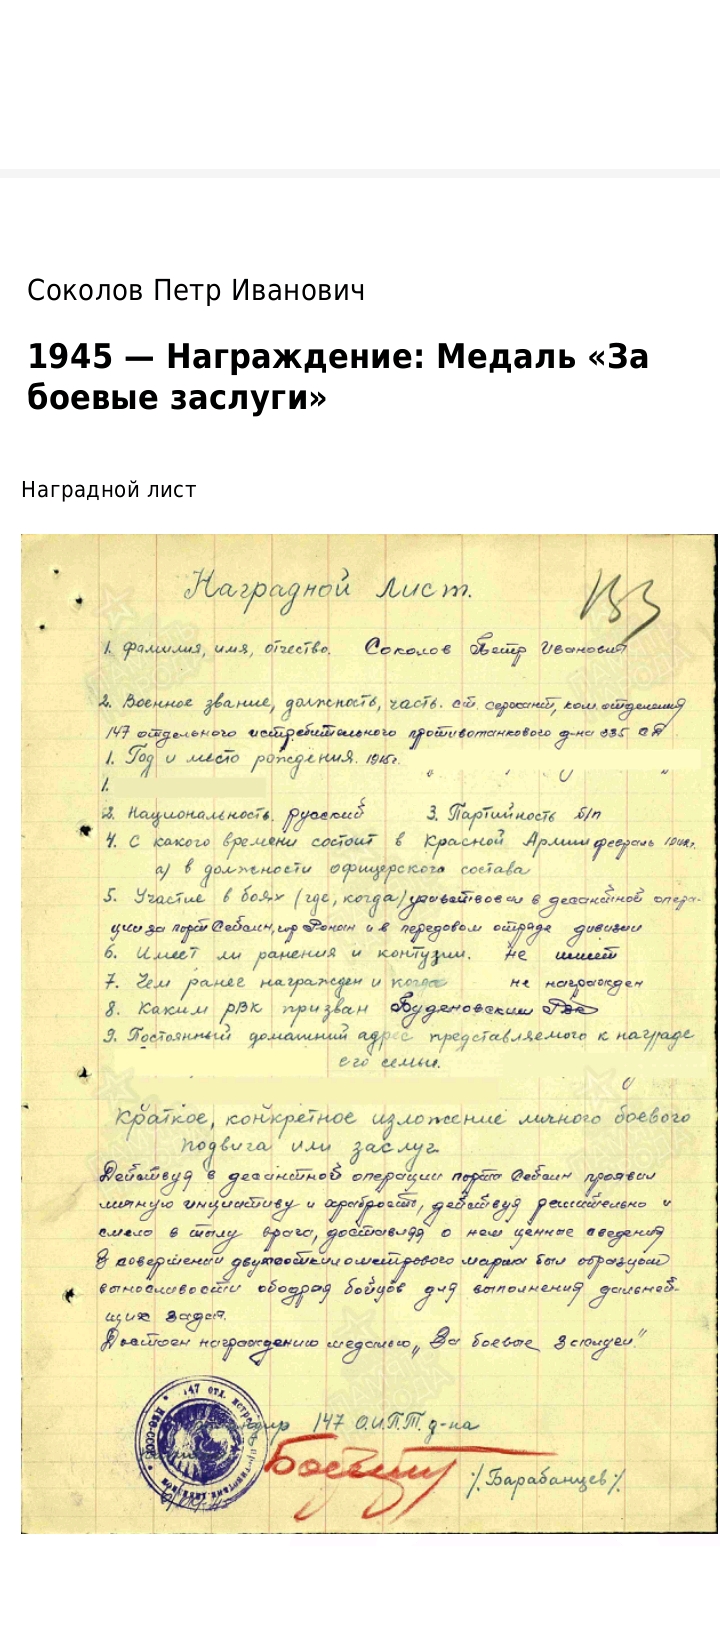 Соколов Петр Иванович
1945 — Награждение: Медаль «За
боевые заслуги»
Наградной лист
Наградной лист.
133
1. Фамилия, имя, отчество. Соколов Петр Иванович
2. Военное звание, должность, часть. ст. сержант, ком. отделения
147 отдельного истребительного противотанкового д-на 335 СД
1. Год и место рождения. 1915г.
1.
2. Национальность. русский 3. Партийность б/п
4. С какого времени состоит в Красной Армии февраль
а) в должности офицерского состава
5. Участие в боях (где, когда) участвовал в десантной опера-
ции за порт Сейсин, гор Ранан и в передовом отряде дивизии
6. Имеет ли ранения и контузии. Не имеет
7. Чем ранее награжден и когда не награжден
8. Каким РВК призван Буденовским РВК
9. Постоянный домашний адрес представляемого к награде
его семьи.
Краткое, конкретное изложение личного боевого
подвига или заслуг
Действуя в десантной операции порта Сейсин проявил
личную инициативу и храбрость, действуя решительно и
смело в тылу врага, доставляя о нем ценные сведения
В совершении двухсоткилометрового марша был образцом
выносливости ободряя бойцов для выполнения дальней-
ших задач.
Достоин награждению медалью „За боевые заслуги"
147 О.И.П.Т. д-на
/Барабанцев/